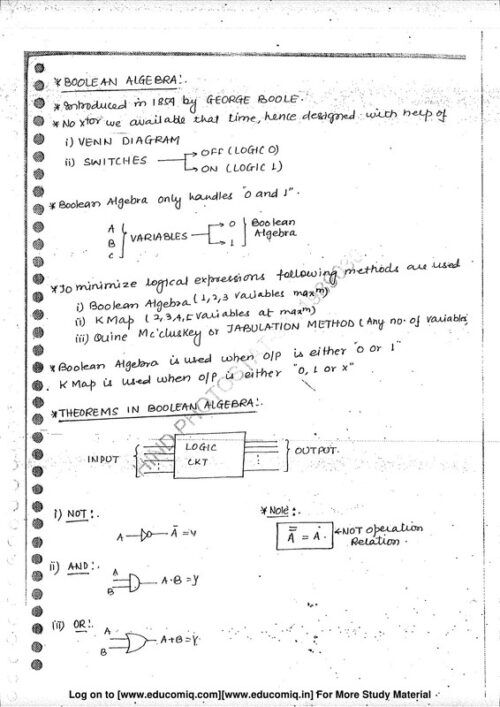 * BOOLEAN ALGEBRA:.
* Introduced in 1854 by GEORGE BOOLE.
* No xtor we available that time, hence designed with help of
i) VENN DIAGRAM
ii) SWITCHES → OFF (LOGIC 0)
→ ON (LOGIC 1)
* Boolean Algebra only handles "0 and 1".
A
B } VARIABLES → 0 } Boolean
C → 1 Algebra
* To minimize logical expressions following methods are used
i) Boolean Algebra (1,2,3 variables maxm)
ii) K Map (2,3,4,5 variables at maxm)
iii) Quine Mc'cluskey or TABULATION METHOD (Any no. of variables
* Boolean Algebra is used when o/p is either "0 or 1"
. K Map is used when o/p is either "0, 1 or x"
* THEOREMS IN BOOLEAN ALGEBRA:.
INPUT { LOGIC CKT } OUTPUT.
i) NOT:.
A Ā = Y
* Note:.
A̿ = A. ← NOT operation
Relation.
ii) AND:.
A
B A·B = Y
iii) OR:.
A
B A+B = Y
HIND PHOTOSTAT
Log on to [www.educomiq.com][www.educomiq.in] For More Study Material